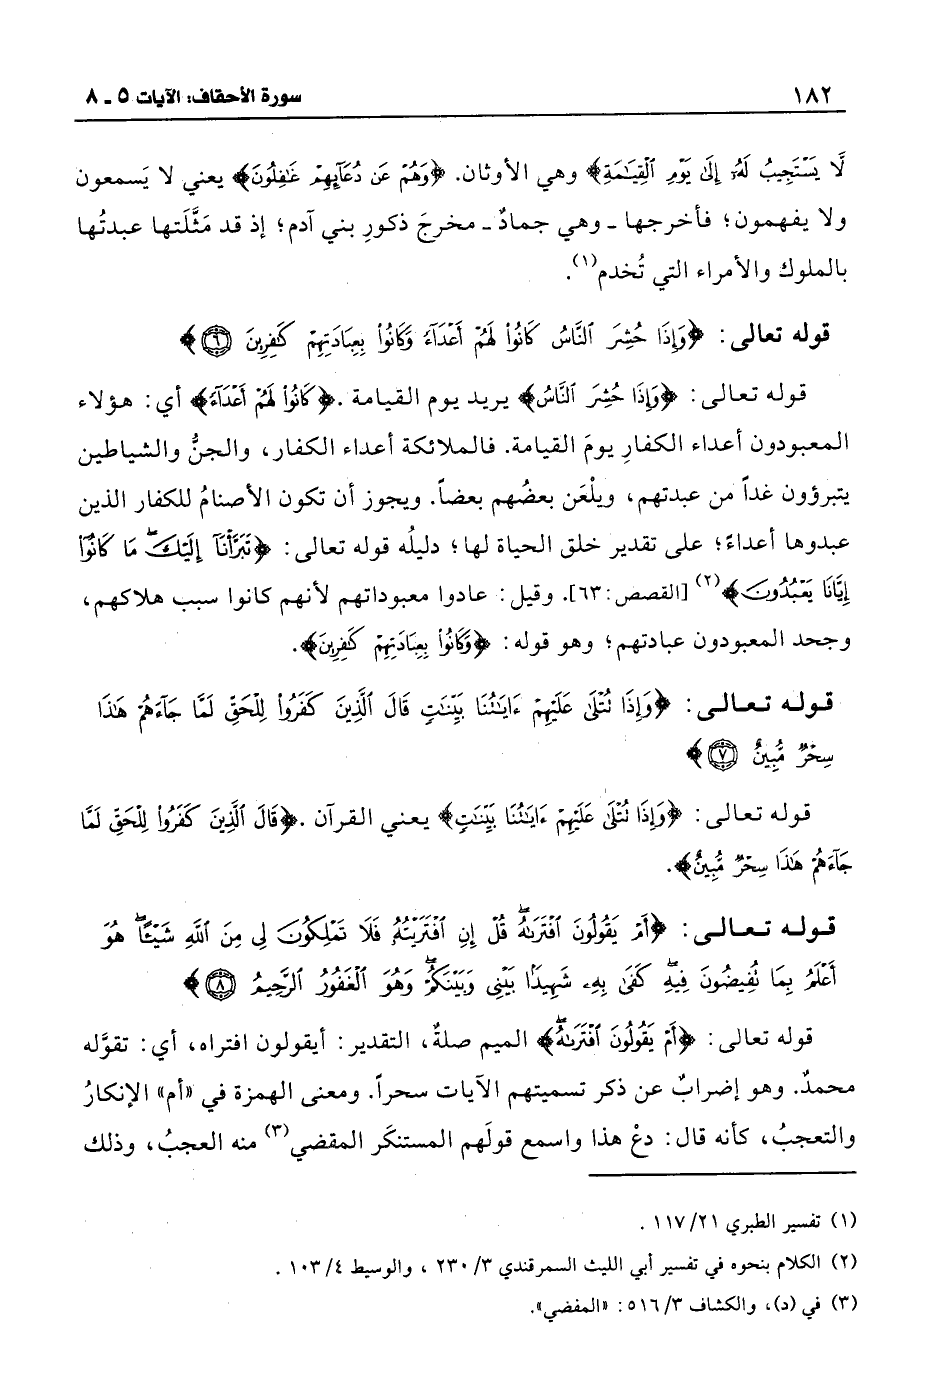 ١٨٢ سورة الأحقاف: الآيات ٥ ـ ٨
لَّا يَسْتَجِيبُ لَهُۥ إِلَىٰ يَوْمِ ٱلْقِيَـٰمَةِ﴾ وهي الأوثان. ﴿وَهُمْ عَن دُعَآئِهِمْ غَـٰفِلُونَ﴾ يعني لا يَسمعون
ولا يفهمون؛ فأخرجها ـ وهي جمادٌ ـ مخرجَ ذكورِ بني آدم؛ إذ قد مَثَّلَتها عبدتُها
بالملوك والأمراء التي تُخدم(١).
قوله تعالى: ﴿وَإِذَا حُشِرَ ٱلنَّاسُ كَانُوا۟ لَهُمْ أَعْدَآءً وَكَانُوا۟ بِعِبَادَتِهِمْ كَـٰفِرِينَ ۝٦﴾
قوله تعالى: ﴿وَإِذَا حُشِرَ ٱلنَّاسُ﴾ يريد يوم القيامة .﴿كَانُوا۟ لَهُمْ أَعْدَآءً﴾ أي: هؤلاء
المعبودون أعداء الكفارِ يومَ القيامة. فالملائكة أعداء الكفار، والجنُّ والشياطين
يتبرؤون غداً من عبدتهم، ويلْعَن بعضُهم بعضاً. ويجوز أن تكون الأصنامُ للكفار الذين
عبدوها أعداءً؛ على تقدير خلق الحياة لها؛ دليلُه قوله تعالى: ﴿تَبَرَّأْنَآ إِلَيْكَ ۖ مَا كَانُوٓا۟
إِيَّانَا يَعْبُدُونَ﴾(٢) [القصص:٦٣]. وقيل: عادوا معبوداتهم لأنهم كانوا سبب هلاكهم،
وجحد المعبودون عبادتهم؛ وهو قوله: ﴿وَكَانُوا۟ بِعِبَادَتِهِمْ كَـٰفِرِينَ﴾.
قوله تعالى: ﴿وَإِذَا تُتْلَىٰ عَلَيْهِمْ ءَايَـٰتُنَا بَيِّنَـٰتٍ قَالَ ٱلَّذِينَ كَفَرُوا۟ لِلْحَقِّ لَمَّا جَآءَهُمْ هَـٰذَا
سِحْرٌ مُّبِينٌ ۝٧﴾
قوله تعالى: ﴿وَإِذَا تُتْلَىٰ عَلَيْهِمْ ءَايَـٰتُنَا بَيِّنَـٰتٍ﴾ يعني القرآن .﴿قَالَ ٱلَّذِينَ كَفَرُوا۟ لِلْحَقِّ لَمَّا
جَآءَهُمْ هَـٰذَا سِحْرٌ مُّبِينٌ﴾.
قوله تعالى: ﴿أَمْ يَقُولُونَ ٱفْتَرَىٰهُ ۖ قُلْ إِنِ ٱفْتَرَيْتُهُۥ فَلَا تَمْلِكُونَ لِى مِنَ ٱللَّهِ شَيْـًٔا ۖ هُوَ
أَعْلَمُ بِمَا تُفِيضُونَ فِيهِ ۖ كَفَىٰ بِهِۦ شَهِيدًۢا بَيْنِى وَبَيْنَكُمْ ۖ وَهُوَ ٱلْغَفُورُ ٱلرَّحِيمُ ۝٨﴾
قوله تعالى: ﴿أَمْ يَقُولُونَ ٱفْتَرَىٰهُ ۖ﴾ الميم صلةٌ، التقدير: أيقولون افتراه، أي: تقوَّله
محمدٌ. وهو إضرابٌ عن ذكر تسميتهم الآيات سحراً. ومعنى الهمزة في «أم» الإنكارُ
والتعجبُ، كأنه قال: دعْ هذا واسمع قولَهم المستنكَر المقضي(٣) منه العجبُ، وذلك
(١) تفسير الطبري ١١٧/٢١ .
(٢) الكلام بنحوه في تفسير أبي الليث السمرقندي ٢٣٠/٣ ، والوسيط ١٠٣/٤ .
(٣) في (د)، والكشاف ٥١٦/٣: «المفضي».